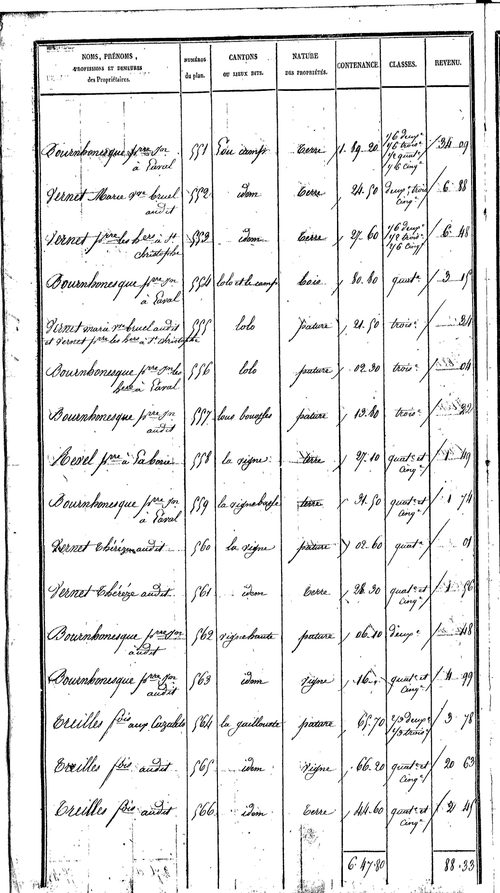 NOMS, PRÉNOMS, PROFESSIONS ET DEMEURES des Propriétaires. NUMÉROS du plan. CANTONS OU LIEUX DITS. NATURE DES PROPRIÉTÉS. CONTENANCE. CLASSES. REVENU.
Bournhonesque prre jn à Laval 551 Lou camp terre 1. 89. 20 34 09
Vernet Marie vve bruel audit 552 idem terre 24. 50 deuxe trois cinqe 6 88
Vernet prre les hers à St christophe 553 idem terre 27. 60 1/6 deuxe 1/2 troise 1/6 cinqe 6 48
Bournhonesque prre jn à Laval 554 lolo et le camp bois 80. 80 quate 3 15
Vernet marie vve bruel audit et Vernet prre les hers à St christophe 555 lolo pature 21. 50 troise 24
Bournhonesque prre jn les hers à Laval 556 lolo pature 02. 30 troise 04
Bournhonesque prre jn audit 557 lous pature 13. 80 troise 22
Revel prre à 558 la vigne terre 27. 10 quate et cinqe 1 49
Bournhonesque prre jn à Laval 559 la vigne basse terre 31. 50 quate et cinqe 1 74
Vernet thérèze audit 560 la vigne pature 02. 60 quate 01
Vernet thérèze audit 561 idem terre 28. 30 quate et cinqe 1 56
Bournhonesque prre jn audit 562 vigne haute pature 06. 10 deuxe 48
Bournhonesque prre jn audit 563 idem vigne 16. quate et cinqe 4 99
Treilles fois aux Cazalets 564 la pature 65. 70 2/3 deuxe 1/3 troise 3 78
Treilles fois audit 565 idem vigne 66. 20 quate et cinqe 20 63
Treilles fois audit 566 idem terre 44. 60 quate et cinqe 2 45
6. 47. 80 88. 33